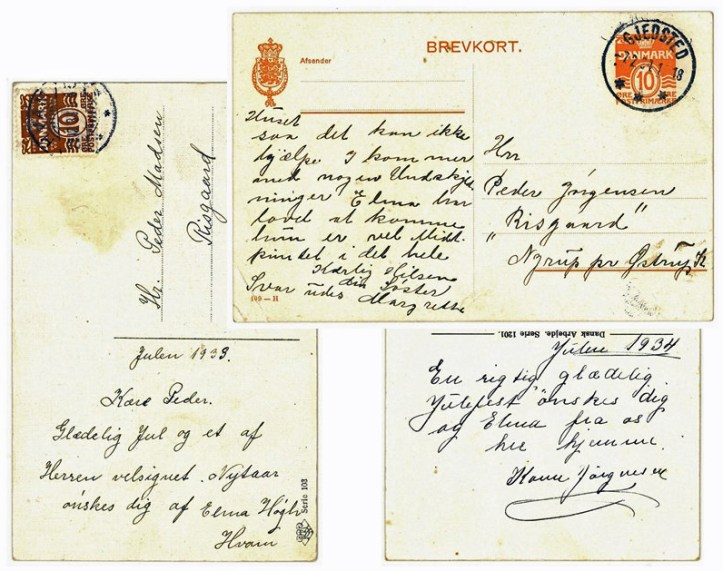 Afsender
BREVKORT.
GJEDSTED
18
DANMARK
10
ØRE
POSTFRIMÆRKE
Huset
saa det kan ikke
hjælpe. I kommer
med nogen Undskyld
ninger Elma har
lovet at komme
hun er vel Midt
punktet i det hele
Kærlig Hilsen
din Søster
Svar udes Margrethe
199-H
Hrr
Peder Jørgensen
"Risgaard"
Nyrup pr Østrup
DANMARK
10
Hr. Peder Madsen
Risgaard
Julen 1933.
Kære Peder.
Glædelig Jul og et af
Herren velsignet Nytaar
ønskes dig af Elma Høgh
Hvam
Serie 103
Dansk Arbejde. Serie 1201.
Julen 1934
En rigtig glædelig
Julefest ønskes dig
og Elma fra os
her hjemme.